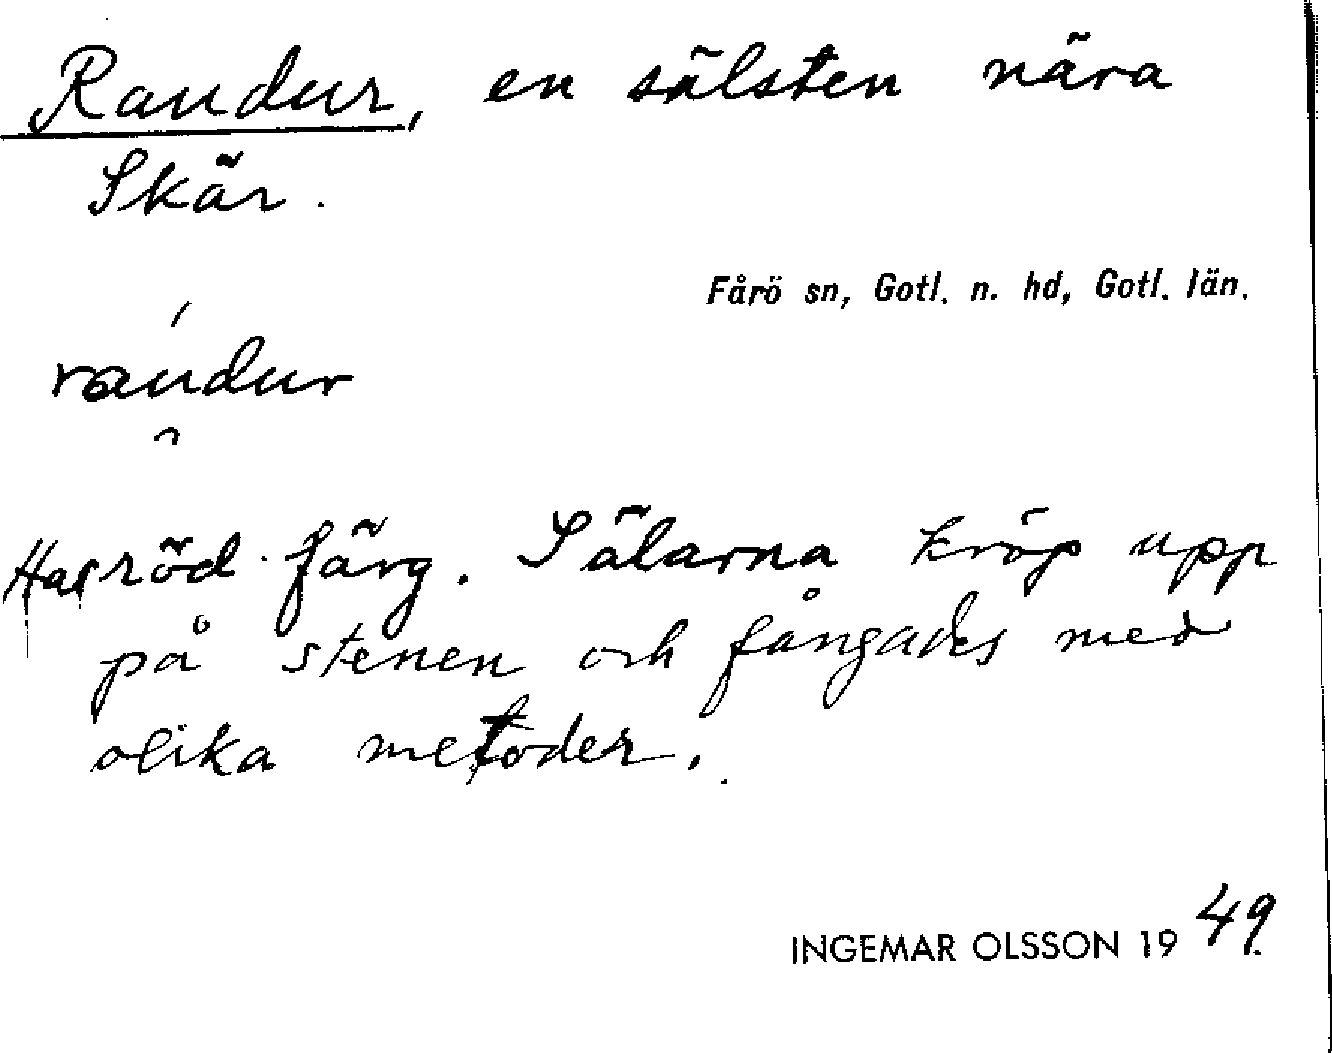 Raudur, en sälsten nära
Skär.
Fårö sn, Gotl. n. hd, Gotl. län.
raudur
Har röd färg. Sälarna kröp upp
på stenen och fångades med
olika metoder.
INGEMAR OLSSON 1949